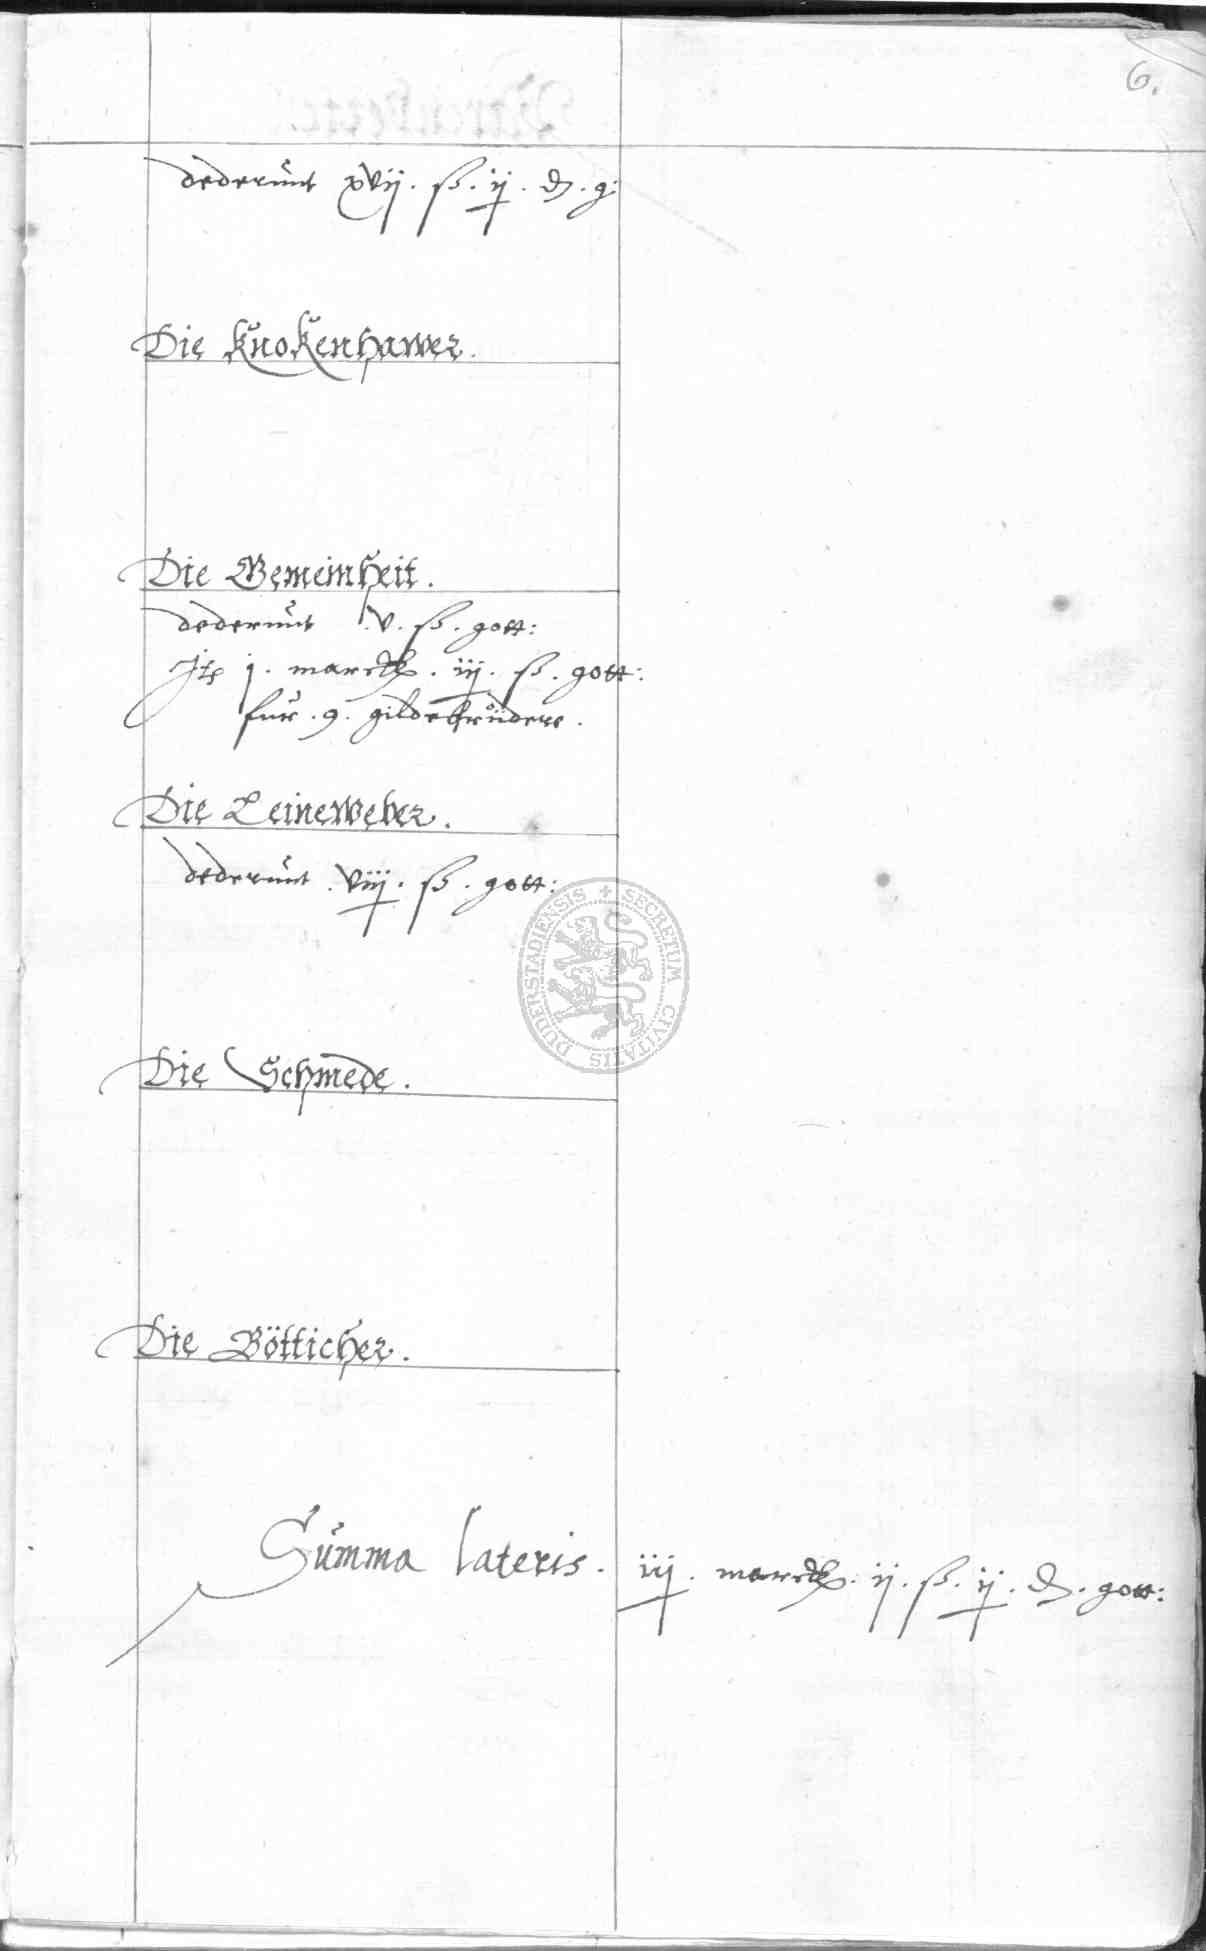 6.
dederunt xvij. ß. ij. ₰. g:
Die Knokenhawer.
Die Gemeinheit.
dederunt lv. ß. gott:
Jtem j. marck. iij. ß. gott:
fur. 9. gildebrüdere.
Die Leineweber.
dederunt. viij. ß. gott:
DUDERSTADIENSIS + SECRETUM CIVITATIS
Die Schmede.
Die Bötticher.
Summa lateris. iij. marck. ij. ß. ij. ₰. gott: